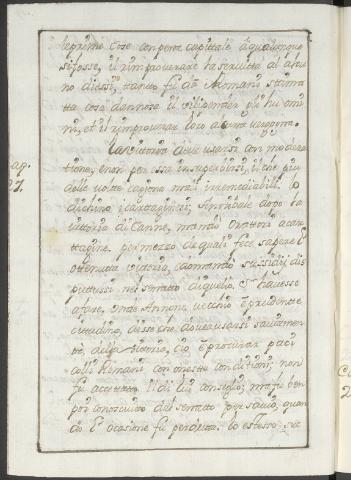 le prime cose con pena capitale à qualunque
si fosse, il rimproverare la servitù ad alcu
no di essi, tanto fù da Romani stima
ta cosa dannosa il vilipender gli huomi
ni, et il rimproverar loro alcuna vergogna.
cap. La vittoria deve usarsi con modera
27. tione, e non per essa insuperbirsi, il che più
delle volte cagiona mali irremediabili. Lo
dichino i Cartaginesi; Annibale dopo la
vittoria di Canne, mandò Oratori à Car
tagine per mezzo de quali fece sapere l'
ottenuta vittoria, domandò sussidij dis
putossi nel senatto di quello, che s'havesse
à fare, onde Annone vecchio e prudente
cittadino, disse che dovea usarsi saviamen
te, della vittoria, cio è procurar pace
colli Romani con oneste conditioni; non
fù accettato il di lui consiglio; ma fù ben
poi conosciuto dal senatto per savio, quan
do l'occasione fù perduta. Lo stesso